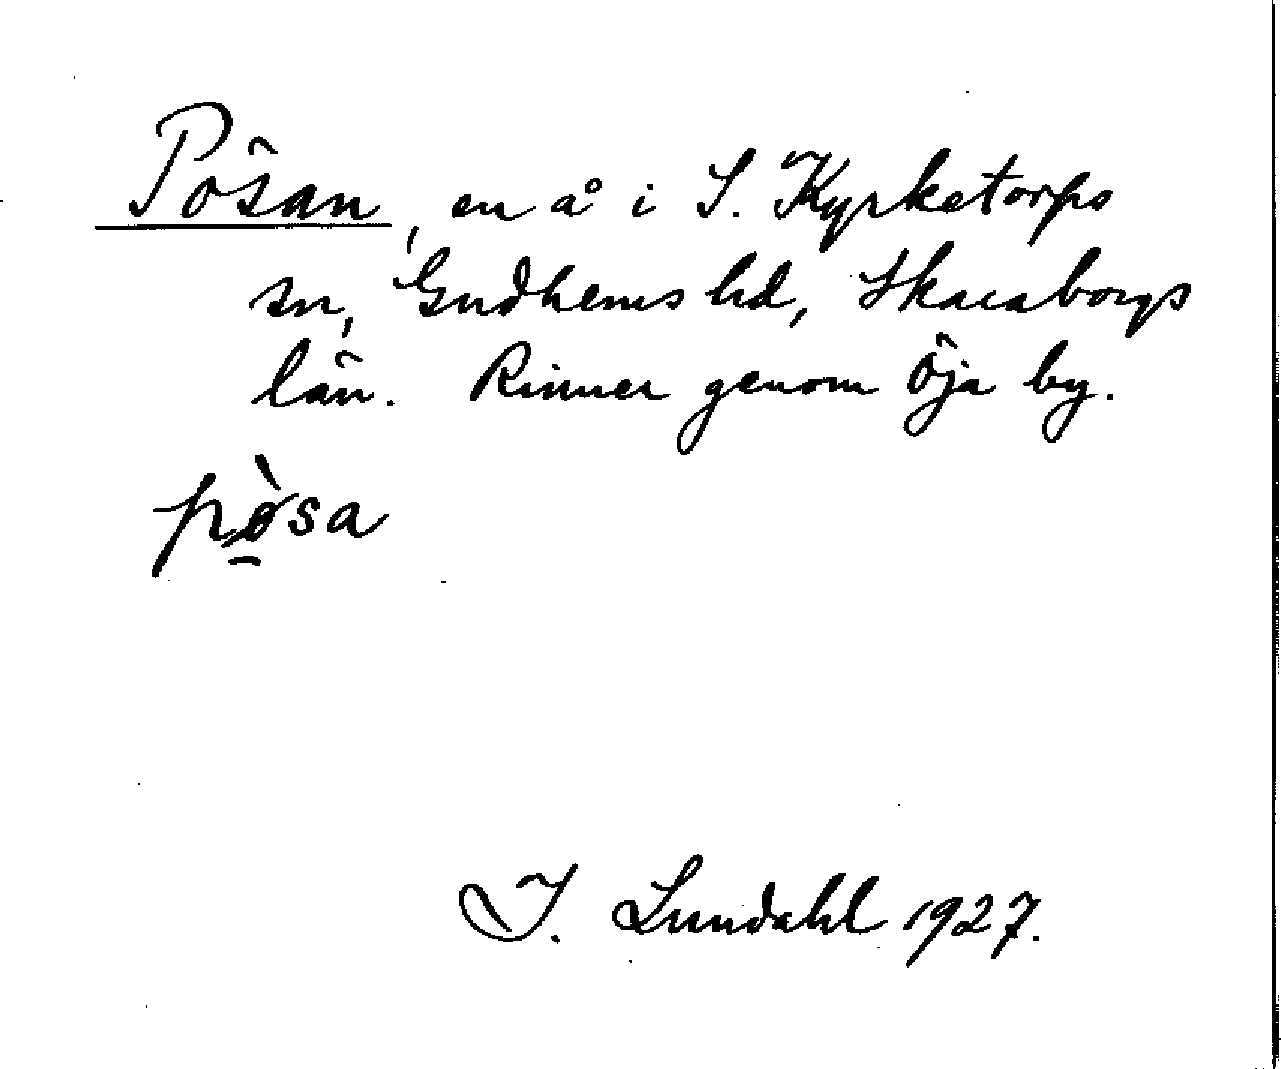 Pösan, en å i S. Kyrketorps
sn, Gudhems hd, Skaraborgs
län. Rinner genom Öja by.
pø̱̀sa
I. Lundahl 1927.